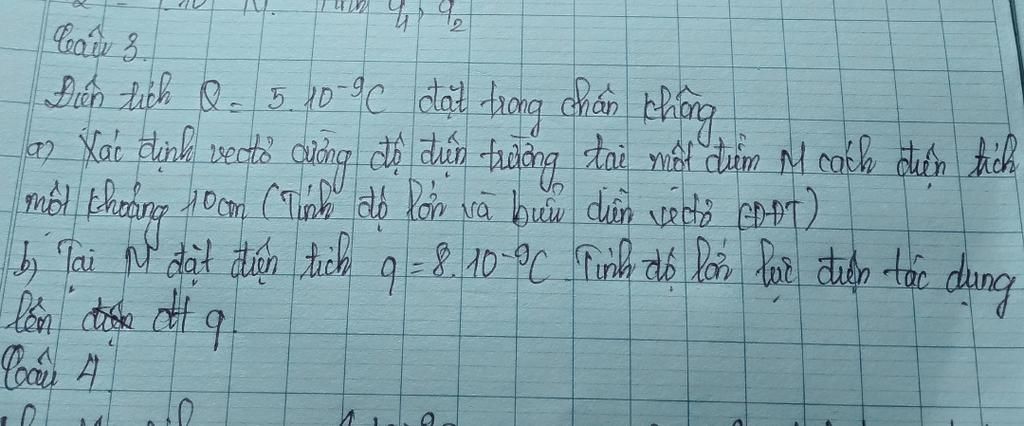 Câu 3.
Điện tích Q = 5.10⁻⁹C đặt trong chân không
a) Xác định vectơ cường độ điện trường tại một điểm M cách điện tích
một khoảng 10cm (Tính độ lớn và biểu diễn vectơ CĐĐT)
b) Tại M đặt điện tích q = 8.10⁻⁹C Tính độ lớn lực điện tác dụng
lên đt q.
Câu 4